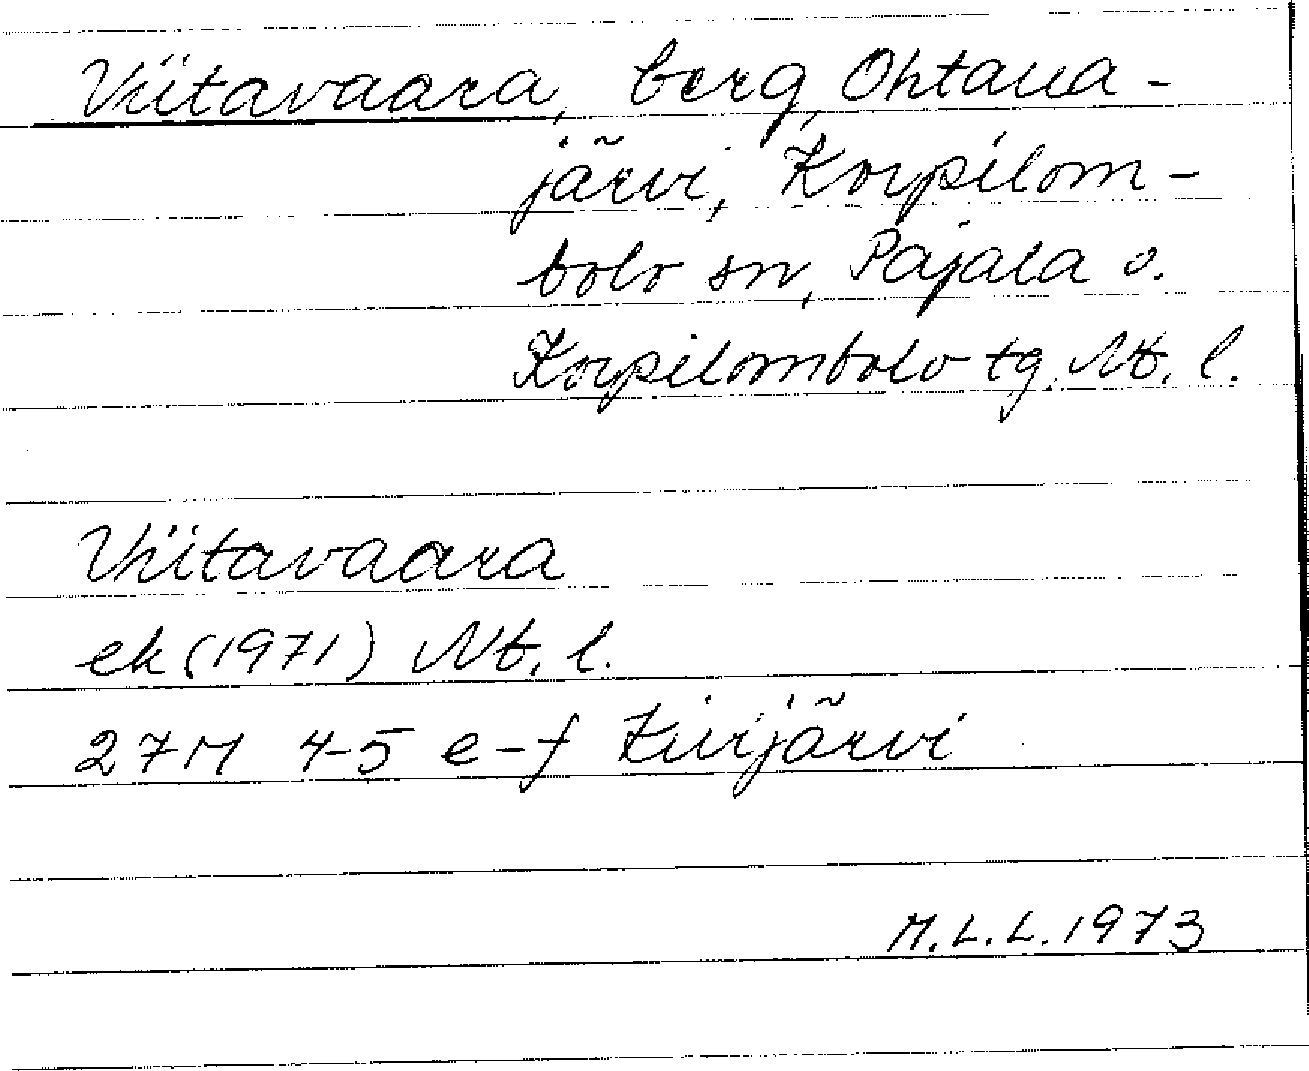 Viitavaara, berg, Ohtana-
järvi, Korpilom-
bolo sn, Pajala o.
Korpilombolo tg. Nb. l.
Viitavaara
ek (1971) Nb. l.
27M 4-5 e-f Kivijärvi
M.L.L. 1973